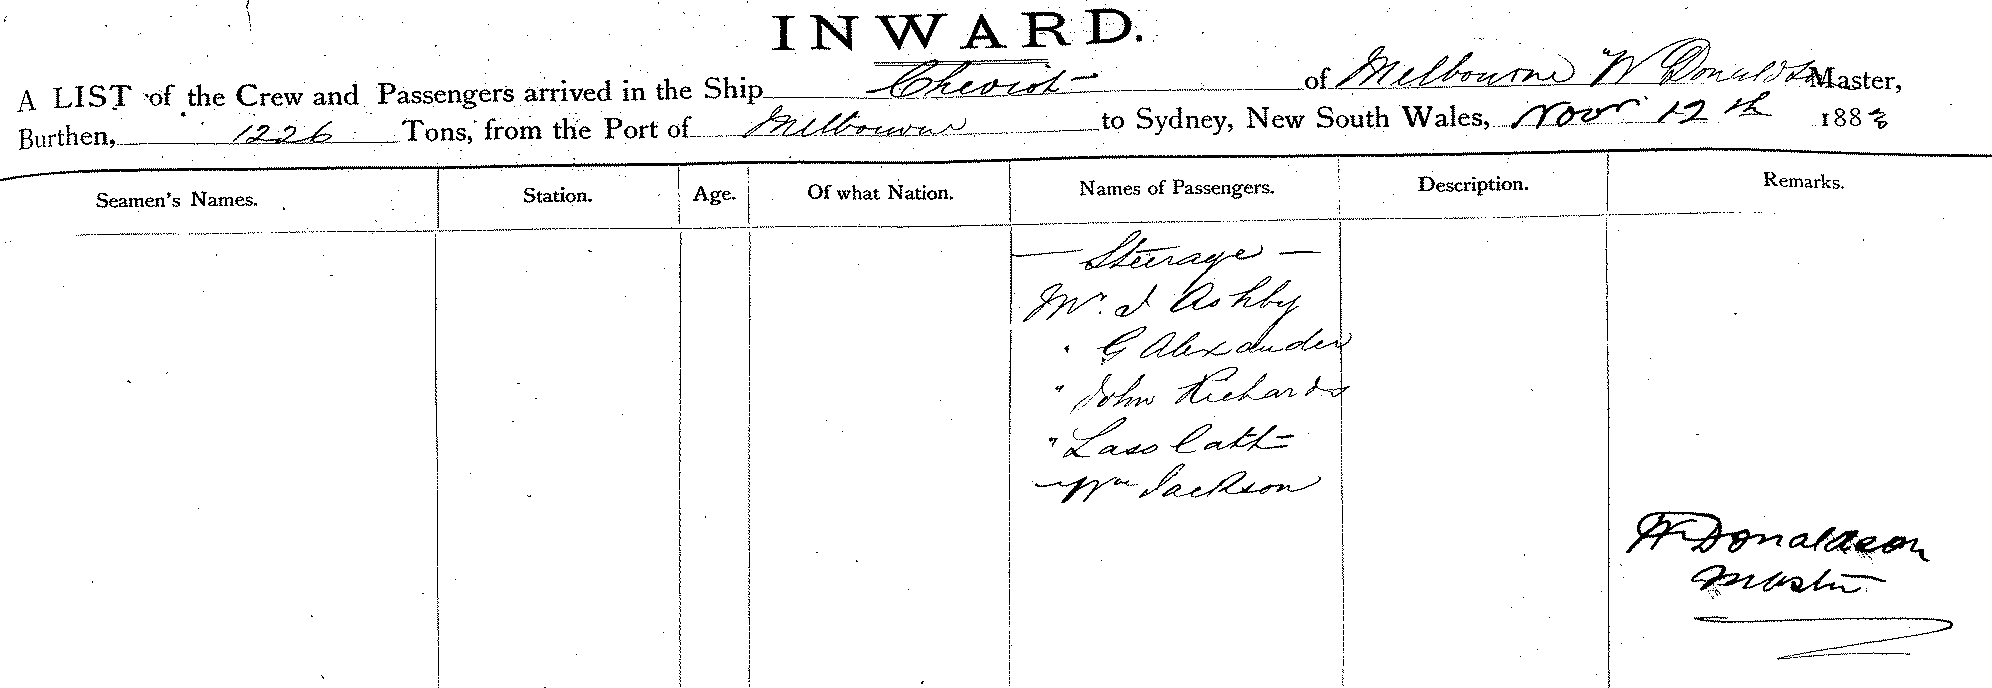 INWARD.
A LIST of the Crew and Passengers arrived in the Ship Cheviot of Melbourne W Donaldson Master,
Burthen, 1226 Tons, from the Port of Melbourne to Sydney, New South Wales, Novr 12th 1883
Seamen's Names. Station. Age. Of what Nation. Names of Passengers. Description. Remarks.
— Steerage —
Mr. J Ashby
" G Alexander
" John Richards
"
Wm Jackson
W Donaldson
Master